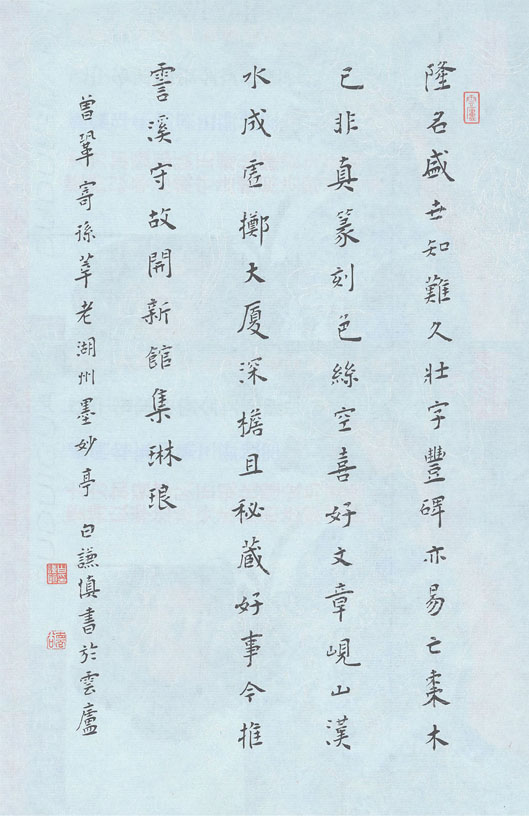 隆名盛世知難久壯字豐碑亦易亡棗木
已非真篆刻色絲空喜好文章峴山漢
水成虛擲大廈深檐且秘藏好事今推
霅溪守故開新館集琳琅
曾鞏寄孫莘老湖州墨妙亭 白謙慎書於雲廬